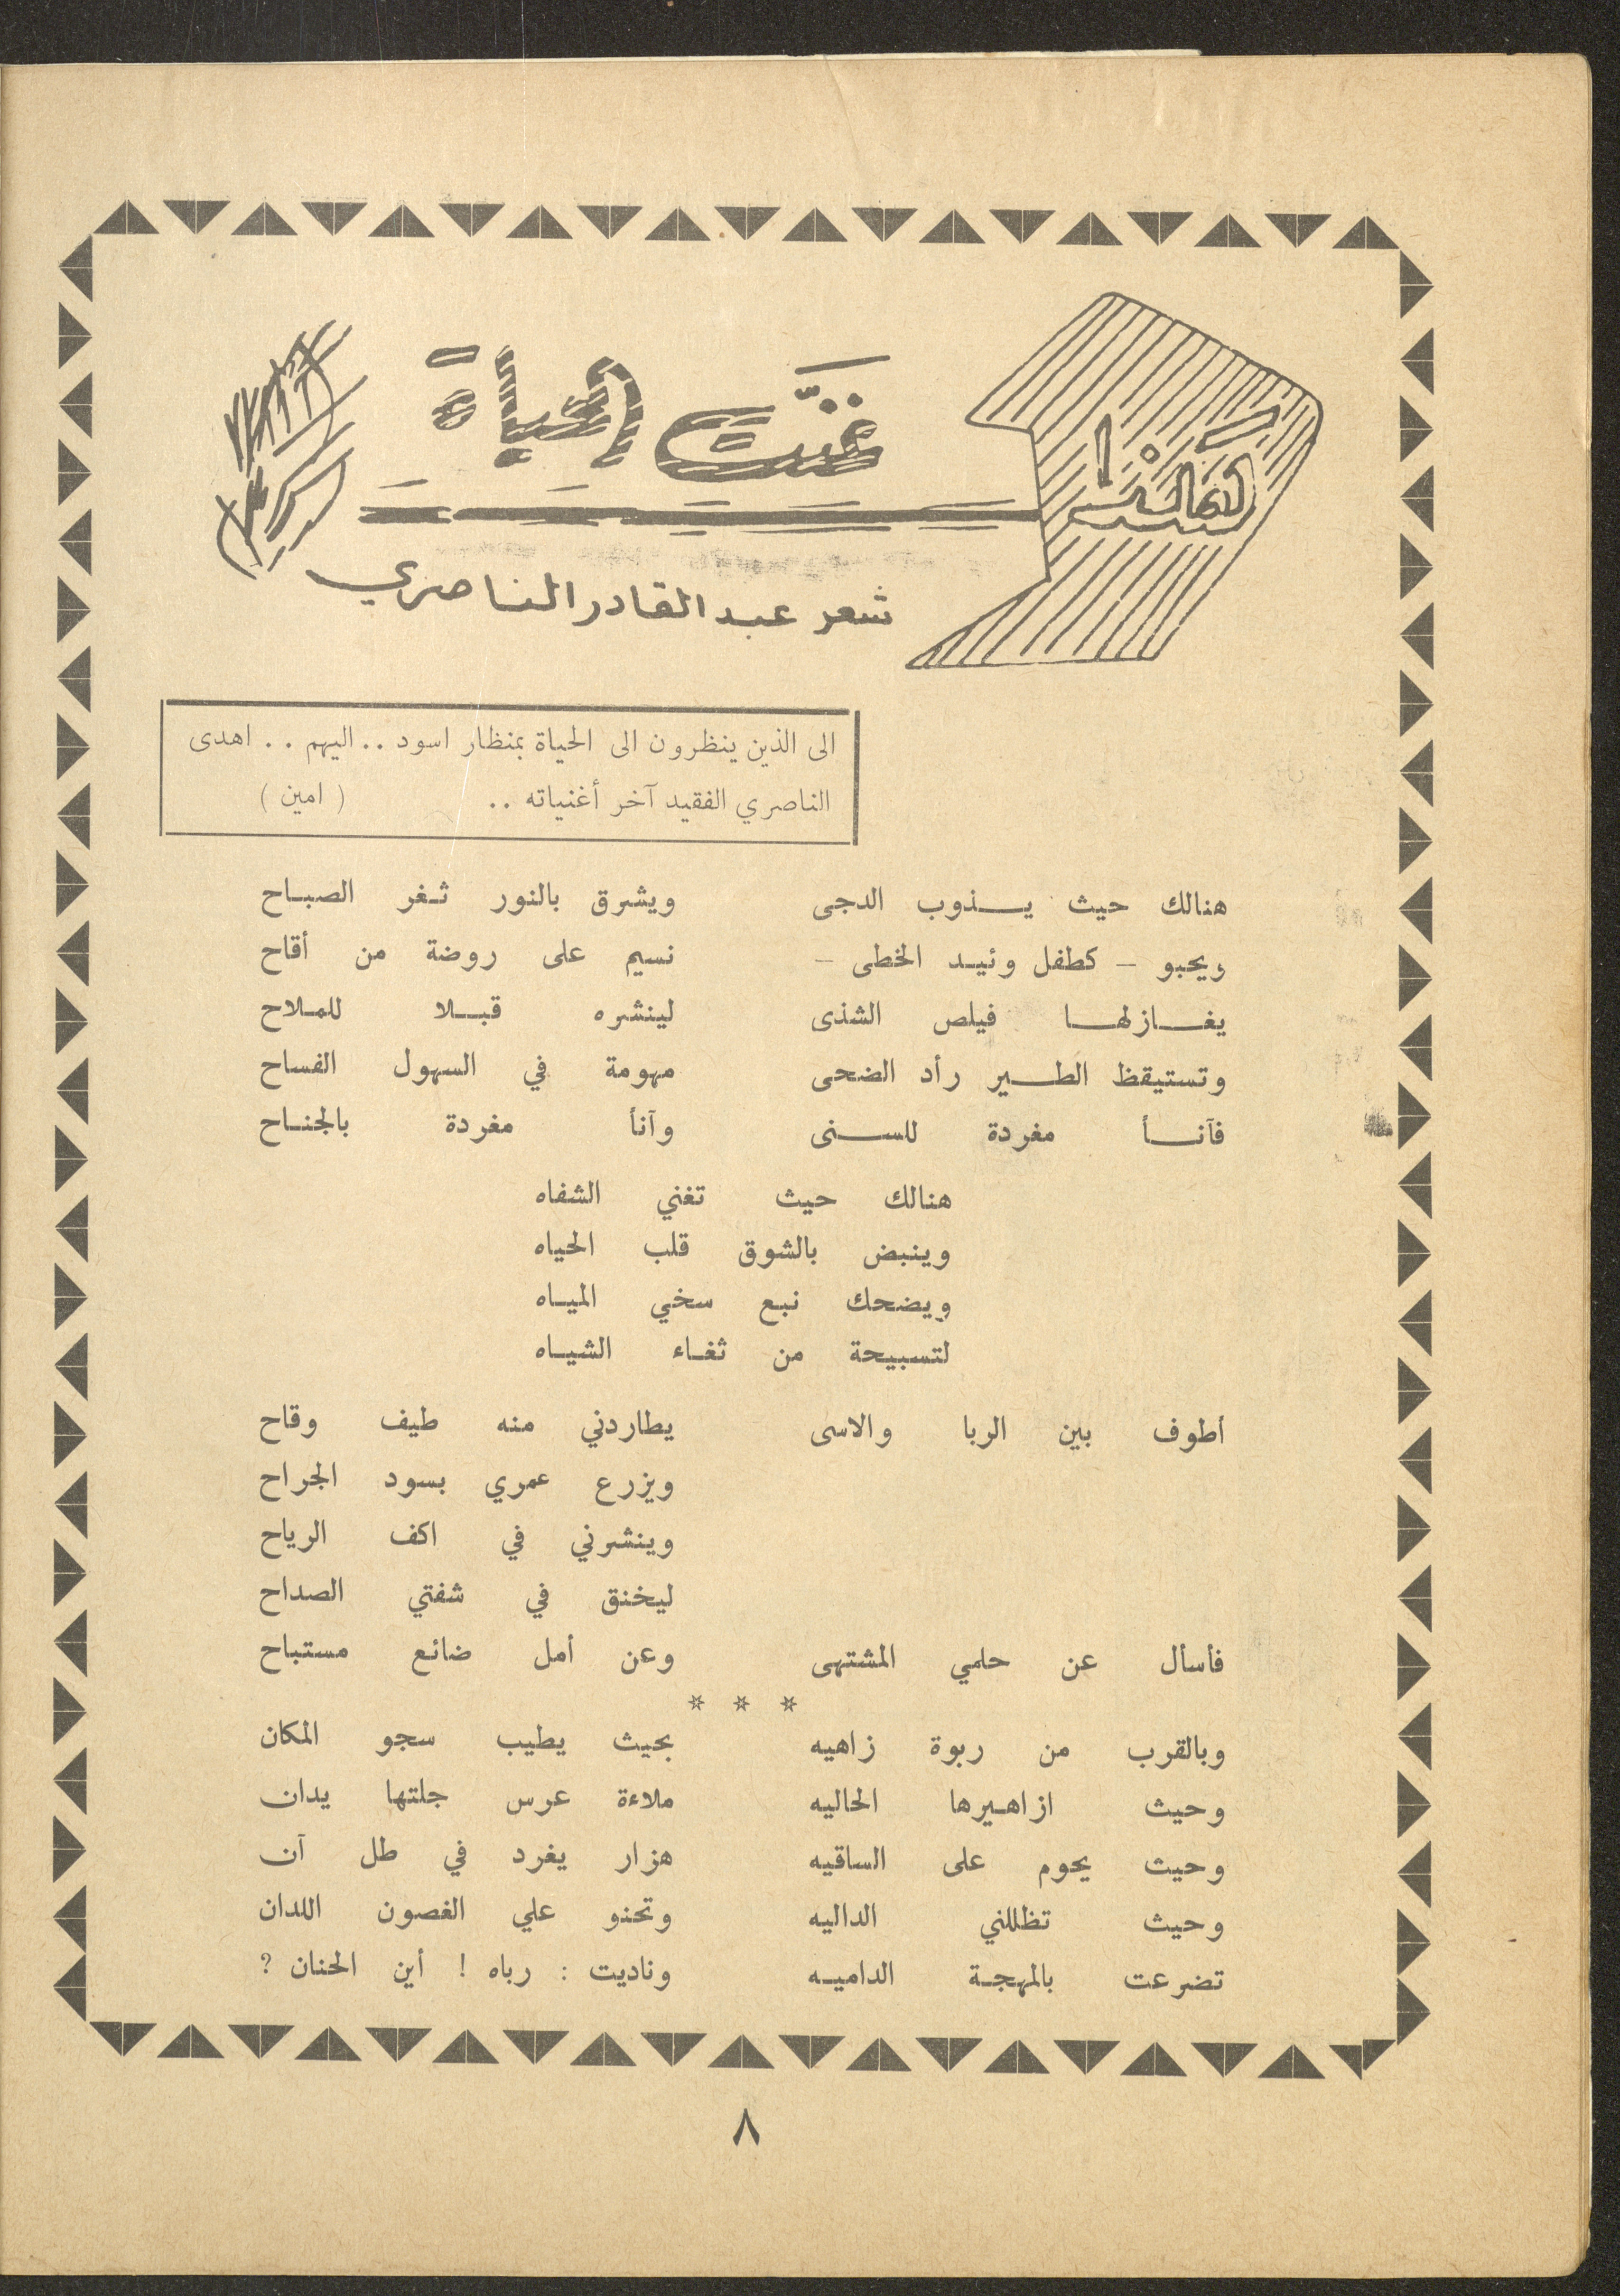 غنت الحياة
شعر عبد القادر الناصري
الى الذين ينظرون الى الحياة بمنظار اسود .. اليهم .. اهدى
الناصري الفقيد آخر أغنياته .. ( امين )
هنالك حيث يـــذوب الدجى ويشرق بالنور ثـغر الصبـاح
ويحبو – كطفل وئيـد الخطى – نسيم على روضة من أقاح
يغـــازلهـــا فيلص الشذى لينشره قبـــلا للمـلاح
وتستيقظ الطـــير رأد الضحى مهومة في السهول الفساح
فآنـــأ مغردة للســـنى وآنأ مغردة بالجنـاح
هنالك حيث تغني الشفاه
وينبض بالشوق قلب الحياه
ويضحك نبـع سخي الميـاه
لتسبيحة من ثغـاء الشيـاه
أطوف بين الربا والاسى يطاردني منه طيف وقاح
ويزرع عمري بسود الجراح
وينشرني في اكف الرياح
ليخنق في شفتي الصداح
فأسأل عن حلمي المشتهى وعن أمل ضائع مستباح
* * *
وبالقرب من ربوة زاهيه بحيث يطيب سجو المكان
وحيث ازاهـيرها الحاليه ملاءة عرس جلتها يدان
وحيث يحوم على الساقيه هزار يغرد في طل آن
وحيث تظللني الداليه وتحنو علي الغصون اللدان
تضرعت بالمهجـة الداميـه وناديت : رباه ! أين الحنان ?
٨